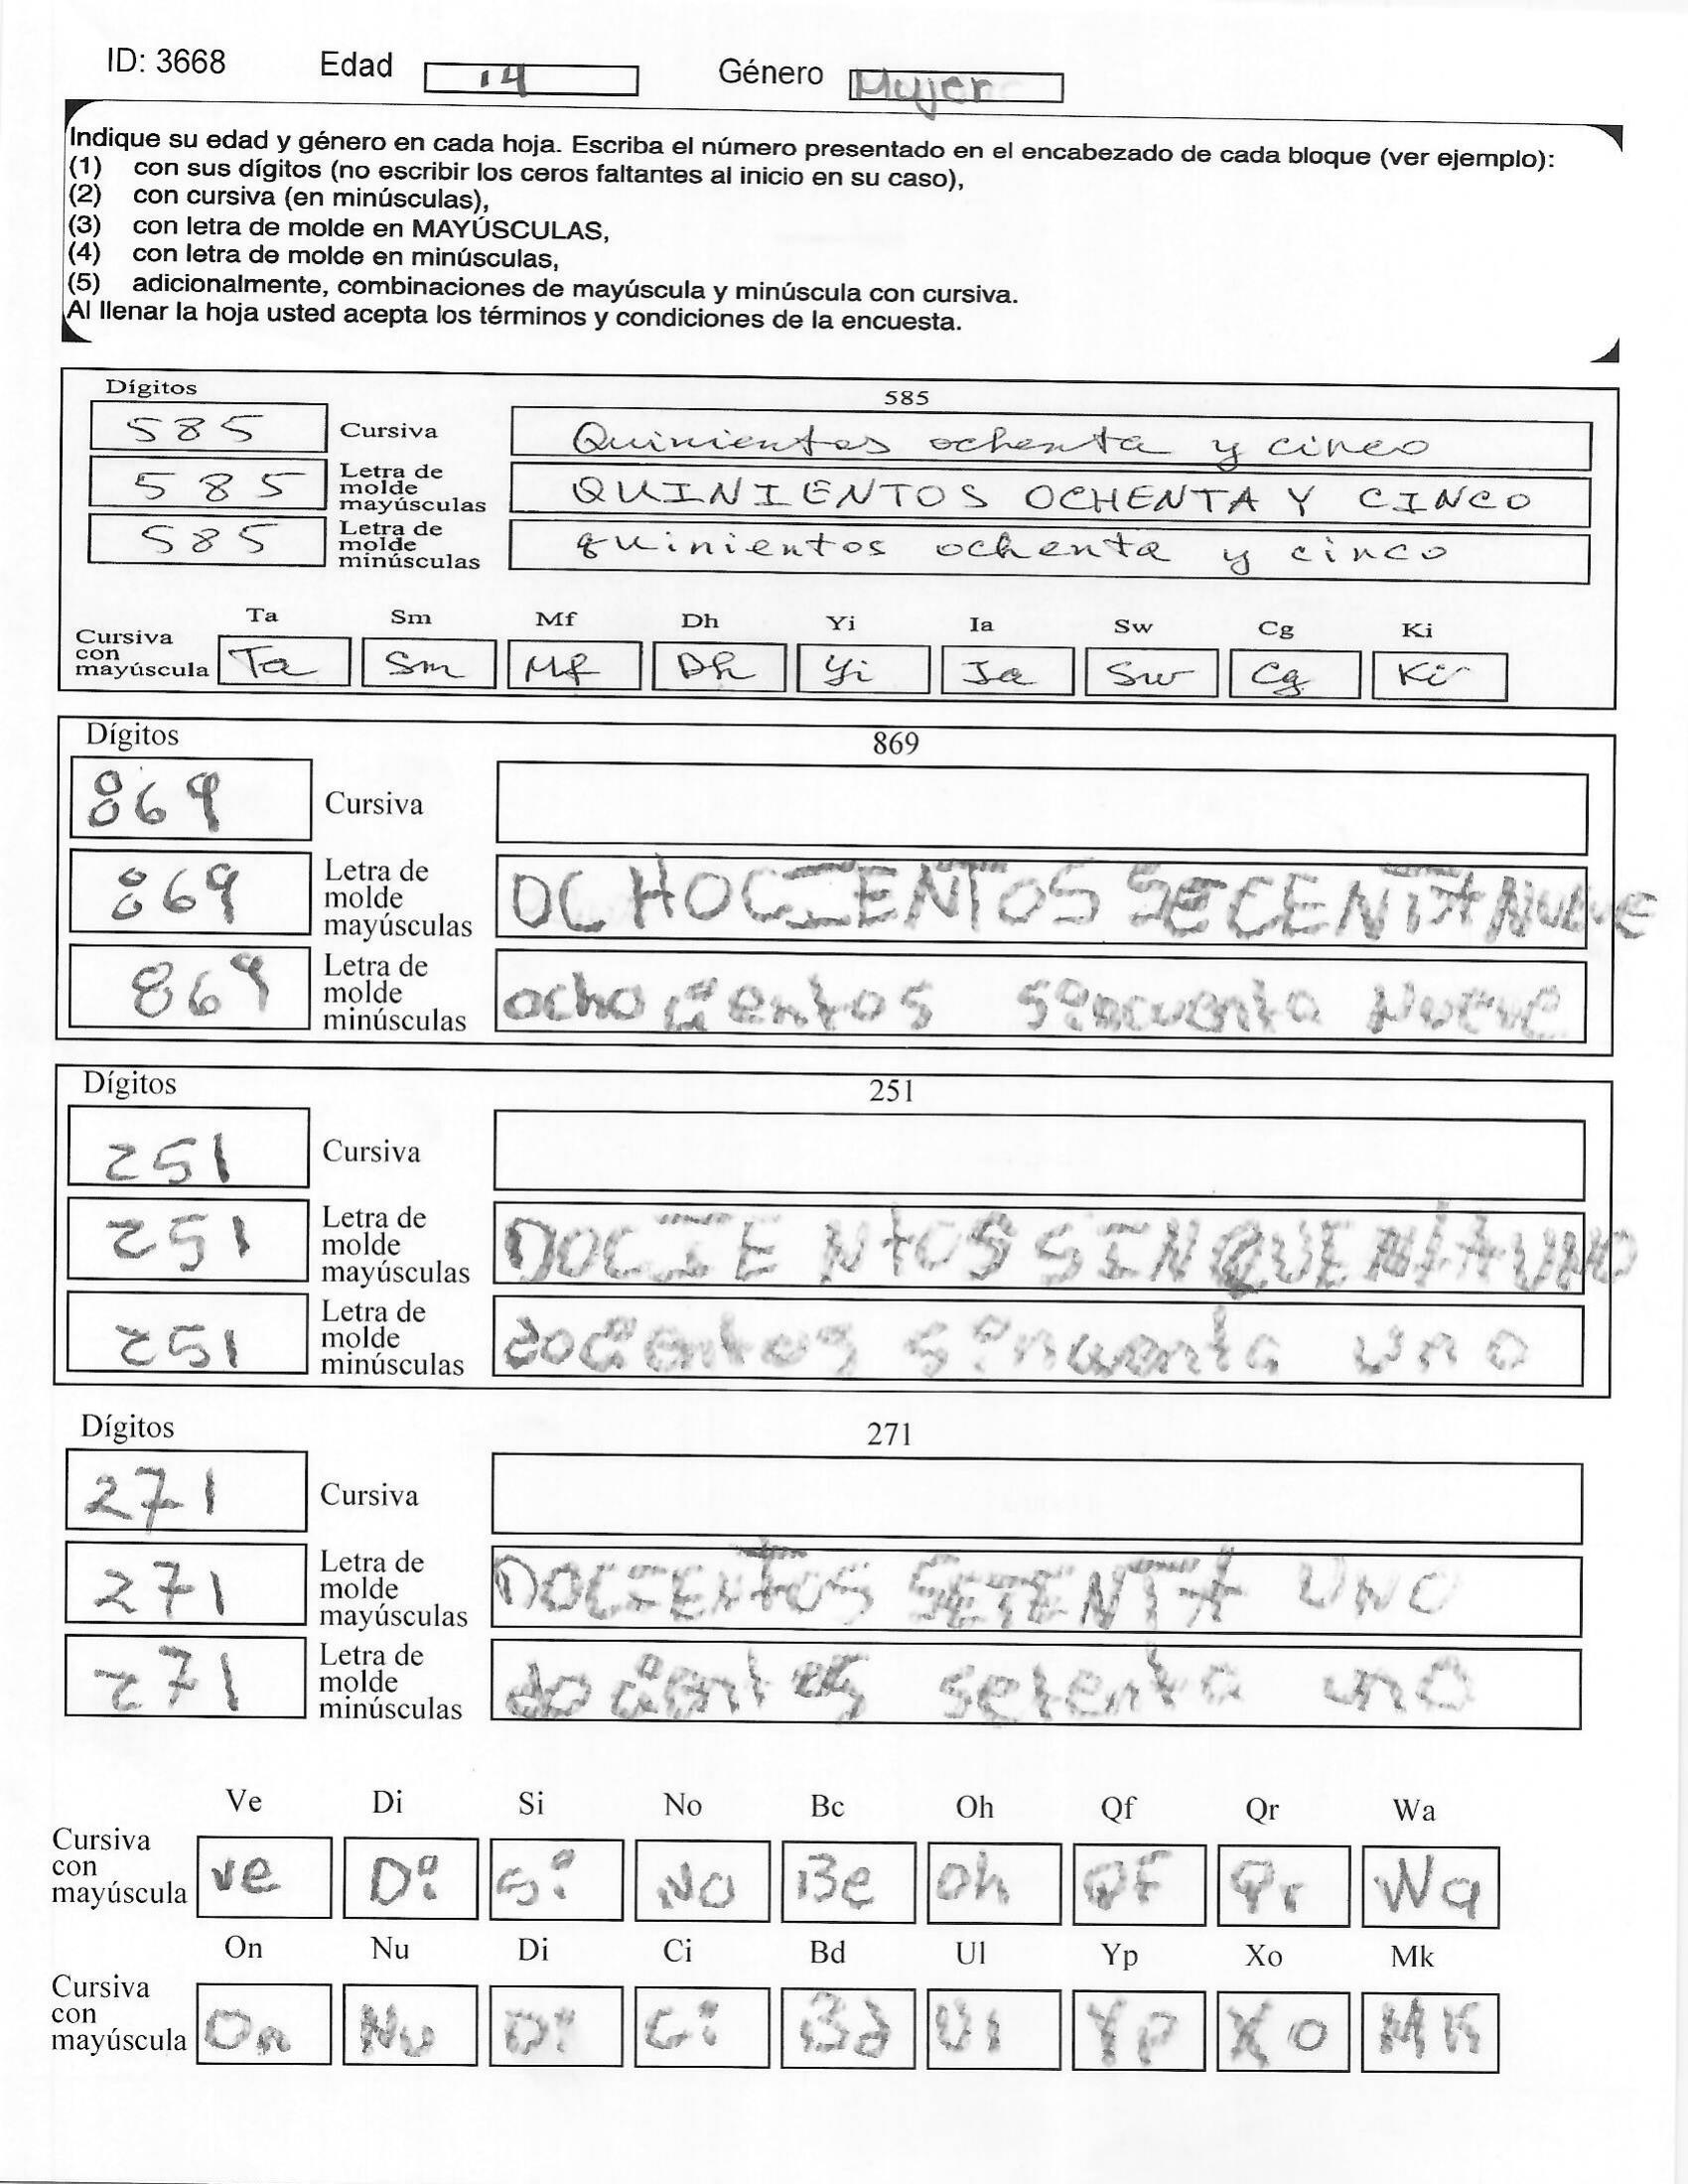 ID: 3668 Edad 14 Género Mujer
Indique su edad y género en cada hoja. Escriba el número presentado en el encabezado de cada bloque (ver ejemplo):
(1) con sus dígitos (no escribir los ceros faltantes al inicio en su caso),
(2) con cursiva (en minúsculas),
(3) con letra de molde en MAYÚSCULAS,
(4) con letra de molde en minúsculas,
(5) adicionalmente, combinaciones de mayúscula y minúscula con cursiva.
Al llenar la hoja usted acepta los términos y condiciones de la encuesta.
Dígitos 585
585 Cursiva Quinientos ochenta y cinco
585 Letra de molde mayúsculas QUINIENTOS OCHENTA Y CINCO
585 Letra de molde minúsculas quinientos ochenta y cinco
Ta Sm Mf Dh Yi Ia Sw Cg Ki
Cursiva con mayúscula Ta Sm Mf Dh Yi Ia Sw Cg Ki
Dígitos 869
869 Cursiva
869 Letra de molde mayúsculas OCHOCIENTOS SECENTA NUEVE
869 Letra de molde minúsculas ochocientos sincuenta Nueve
Dígitos 251
251 Cursiva
251 Letra de molde mayúsculas DOCIENtOS SINQUENtA UNO
251 Letra de molde minúsculas docientos sincuenta uno
Dígitos 271
271 Cursiva
271 Letra de molde mayúsculas DOCIENtOS SETENTA UNO
271 Letra de molde minúsculas docientos setenta uno
Ve Di Si No Bc Oh Qf Qr Wa
Cursiva con mayúscula ve Di Si No Be Oh QF Qr Wa
On Nu Di Ci Bd Ul Yp Xo Mk
Cursiva con mayúscula On Nu Di Ci Bd Ul YP XO MK